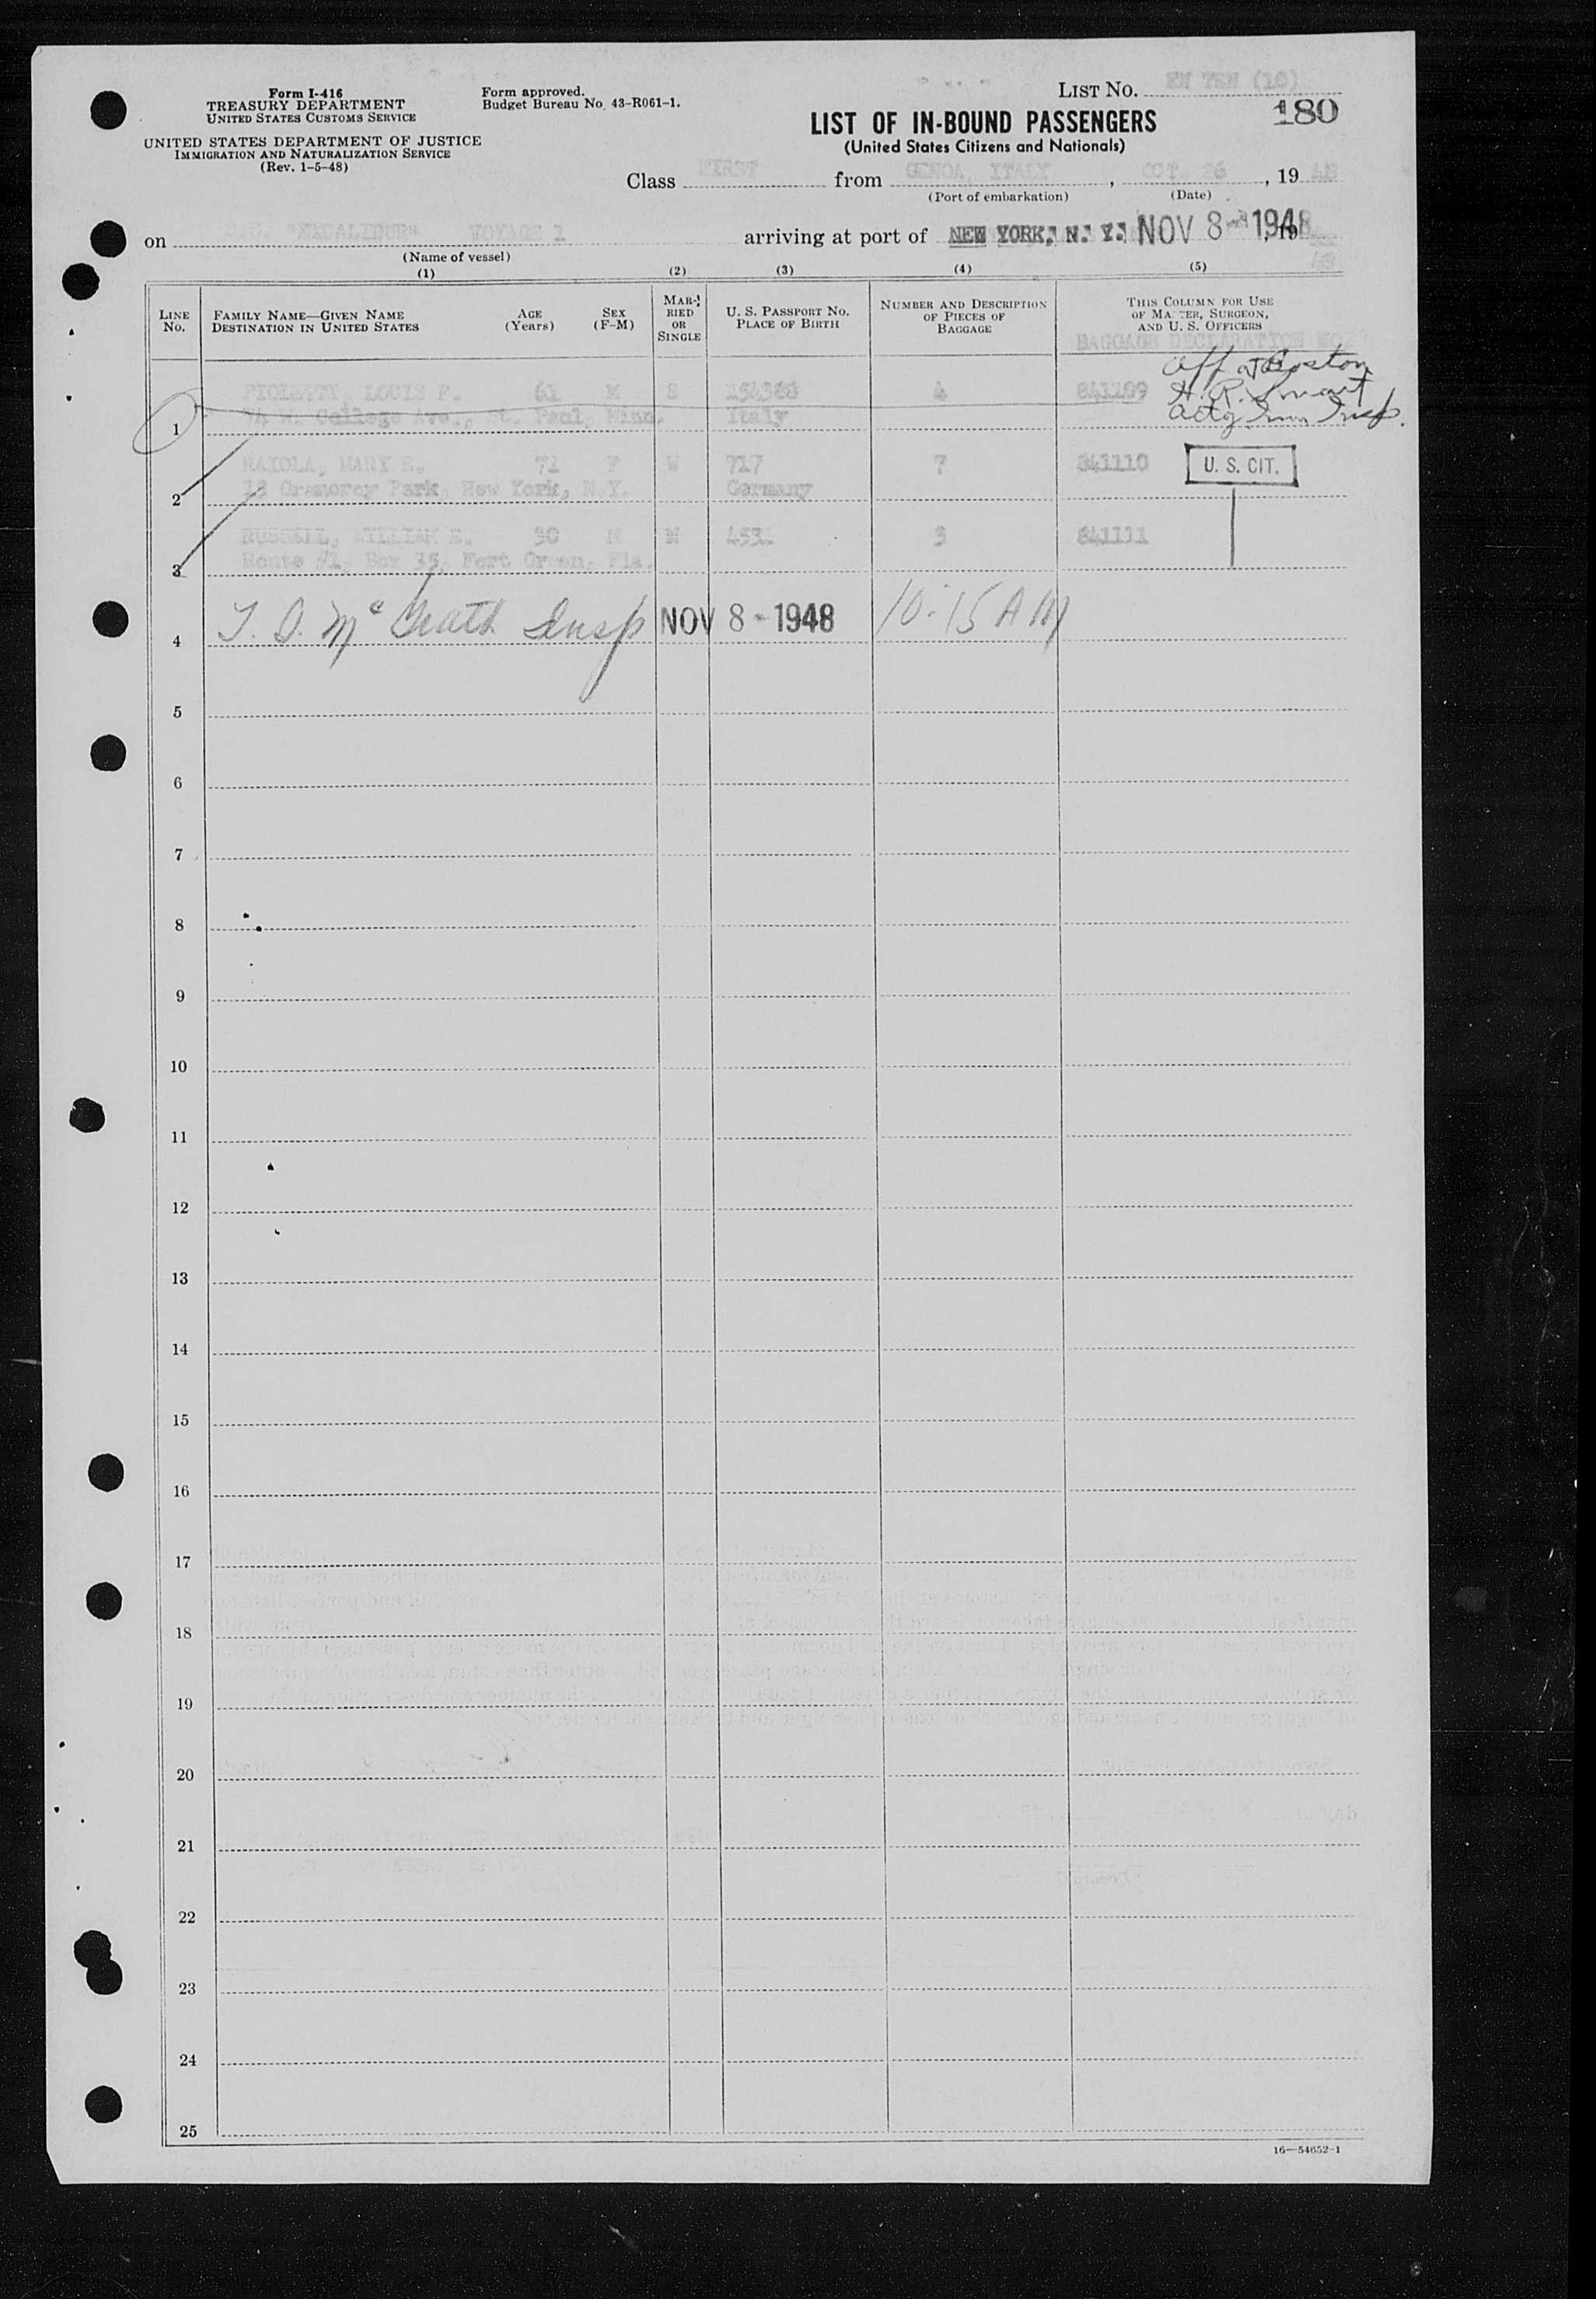 Form I-416
TREASURY DEPARTMENT
UNITED STATES CUSTOMS SERVICE
UNITED STATES DEPARTMENT OF JUSTICE
IMMIGRATION AND NATURALIZATION SERVICE
(Rev. 1-5-48)
Form approved.
Budget Bureau No. 43-R061-1.
LIST NO. TEN (10)
180
LIST OF IN-BOUND PASSENGERS
(United States Citizens and Nationals)
Class FIRST from GENOA, ITALY, OCT. 26, 1948
(Port of embarkation) (Date)
on S.S. "EXCALIBUR" VOYAGE 1 arriving at port of NEW YORK, N. Y. NOV 8 - 1948, 19
(Name of vessel)
(1) (2) (3) (4) (5)
LINE No. FAMILY NAME—GIVEN NAME DESTINATION IN UNITED STATES AGE (Years) SEX (F-M) MARRIED OR SINGLE U. S. PASSPORT NO. PLACE OF BIRTH NUMBER AND DESCRIPTION OF PIECES OF BAGGAGE THIS COLUMN FOR USE OF MASTER, SURGEON, AND U. S. OFFICERS
BAGGAGE DECLARATION NO.
Off at Boston
H. R. Smart
Actg Imm Insp.
PIOLETTI, LOUIS F. 61 M S 4 841109
1 W. College Ave., St. Paul, Minn. Italy
RAIOLA, MARY E. 71 F W 717 7 841110 U. S. CIT.
2 18 Gramercy Park, New York, N.Y. Germany
RUSSELL, WILLIAM E. 30 M M 3 841111
3 Route #1, Box 35, Fort Green, Fla.
4 T. S. McGrath Insp NOV 8 - 1948 10-15 AM
5
6
7
8
9
10
11
12
13
14
15
16
17
18
19
20
21
22
23
24
25
16—54652-1